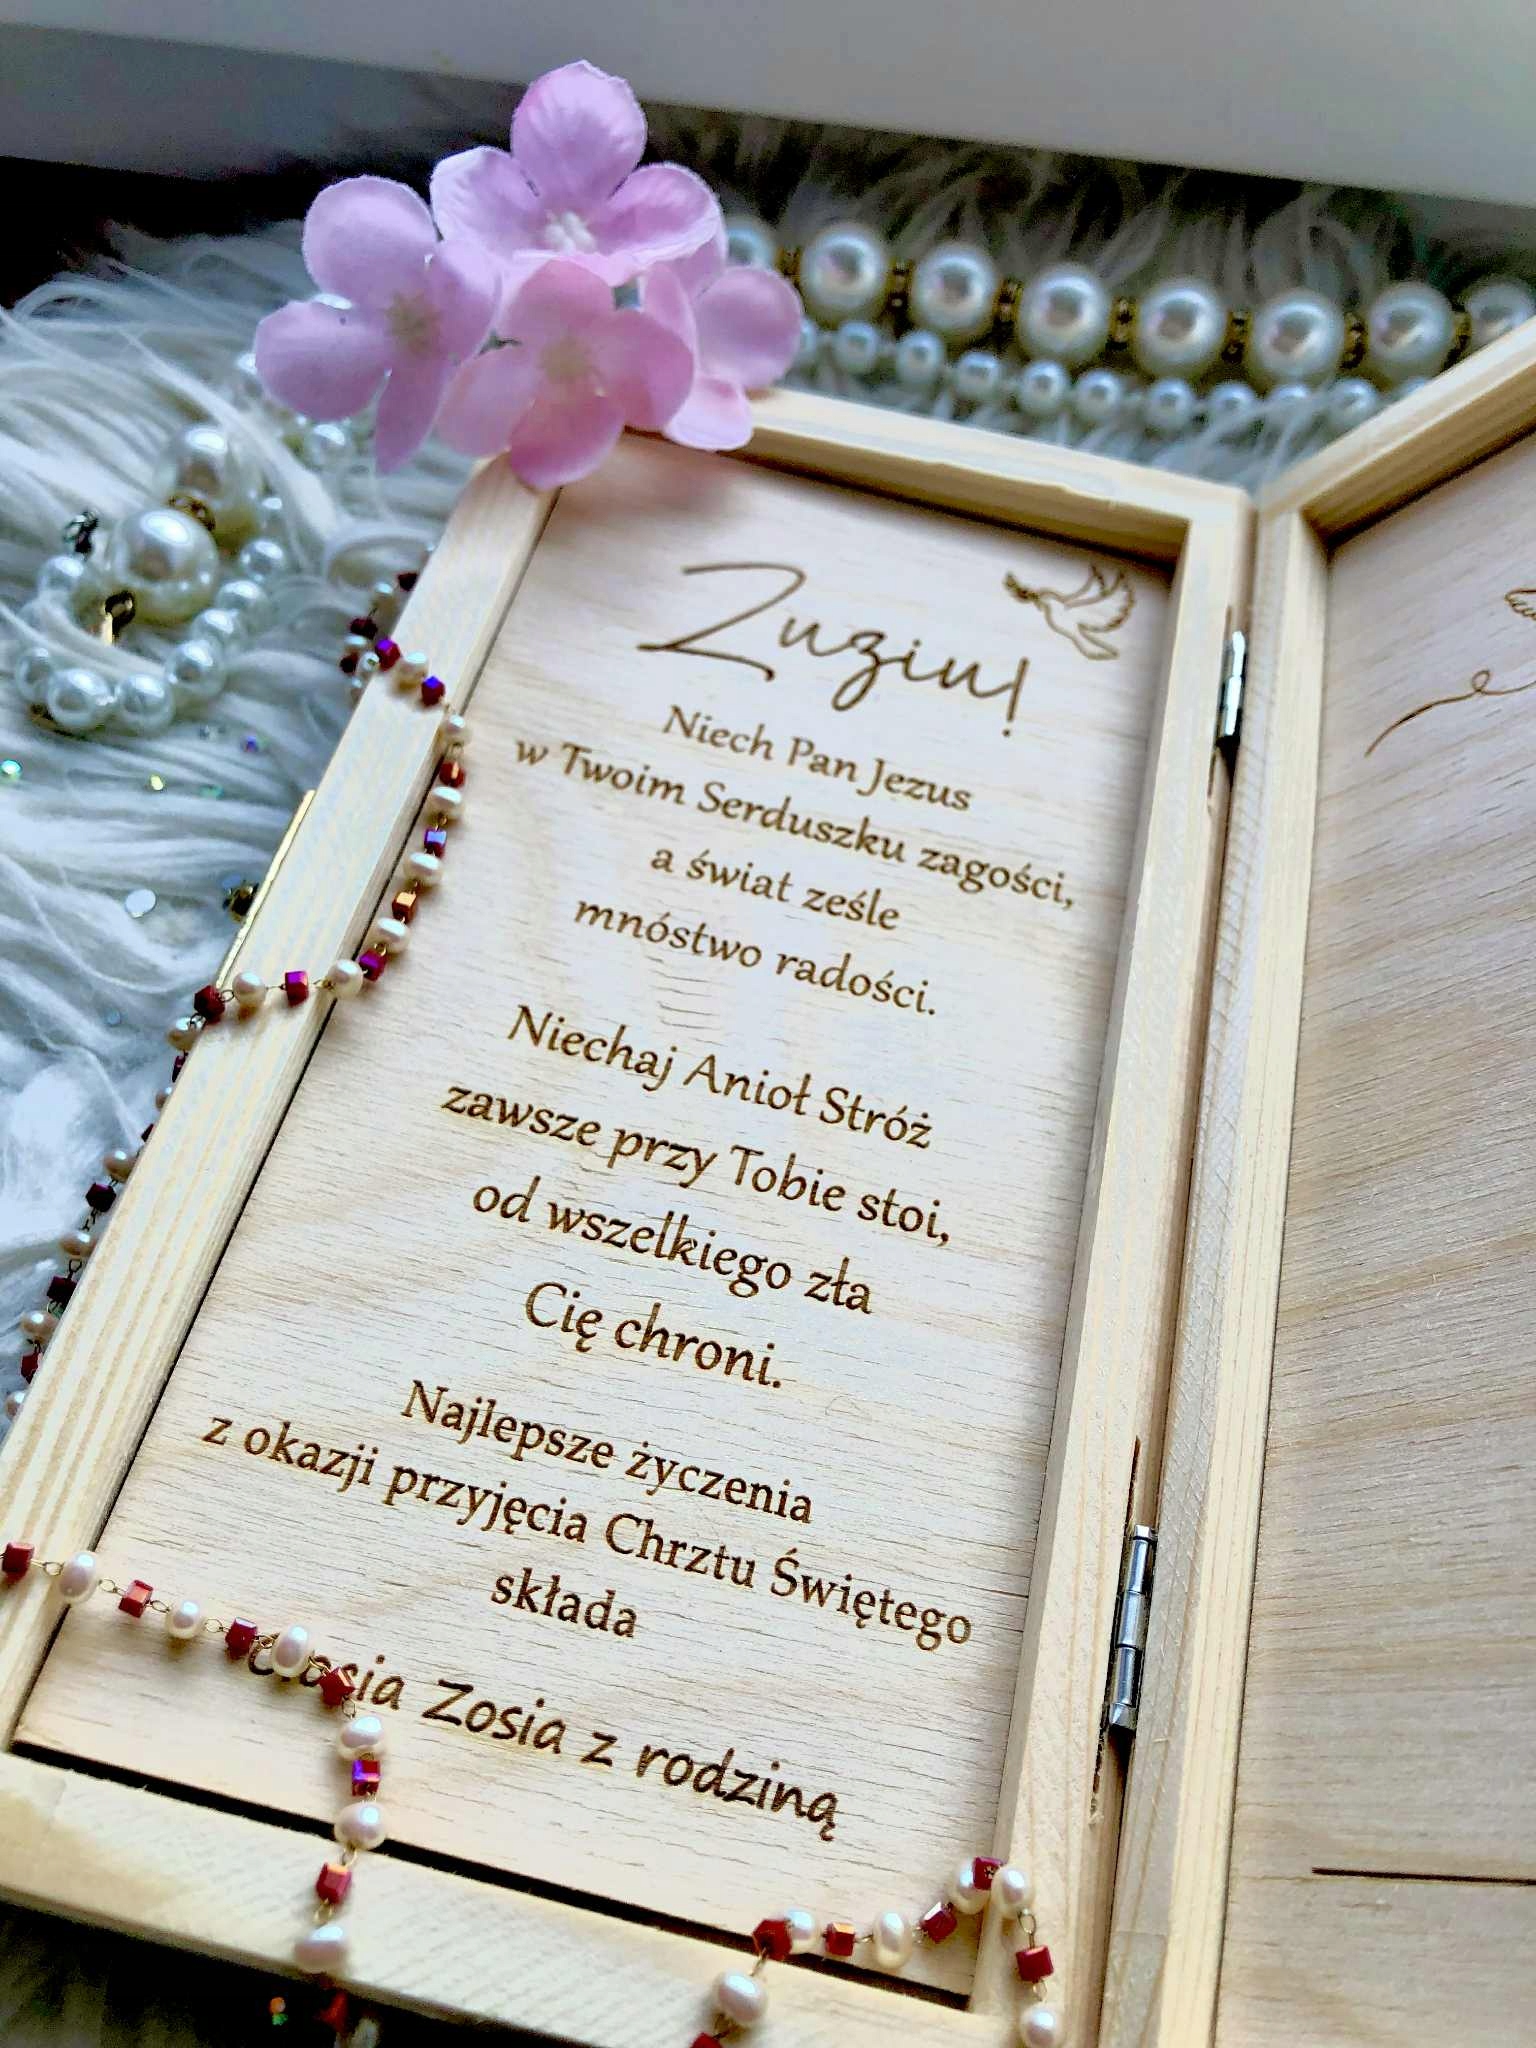 Zuziu!
Niech Pan Jezus
w Twoim Serduszku zagości,
a świat ześle
mnóstwo radości.
Niechaj Anioł Stróż
zawsze przy Tobie stoi,
od wszelkiego zła
Cię chroni.
Najlepsze życzenia
z okazji przyjęcia Chrztu Świętego
składa
Zosia z rodziną